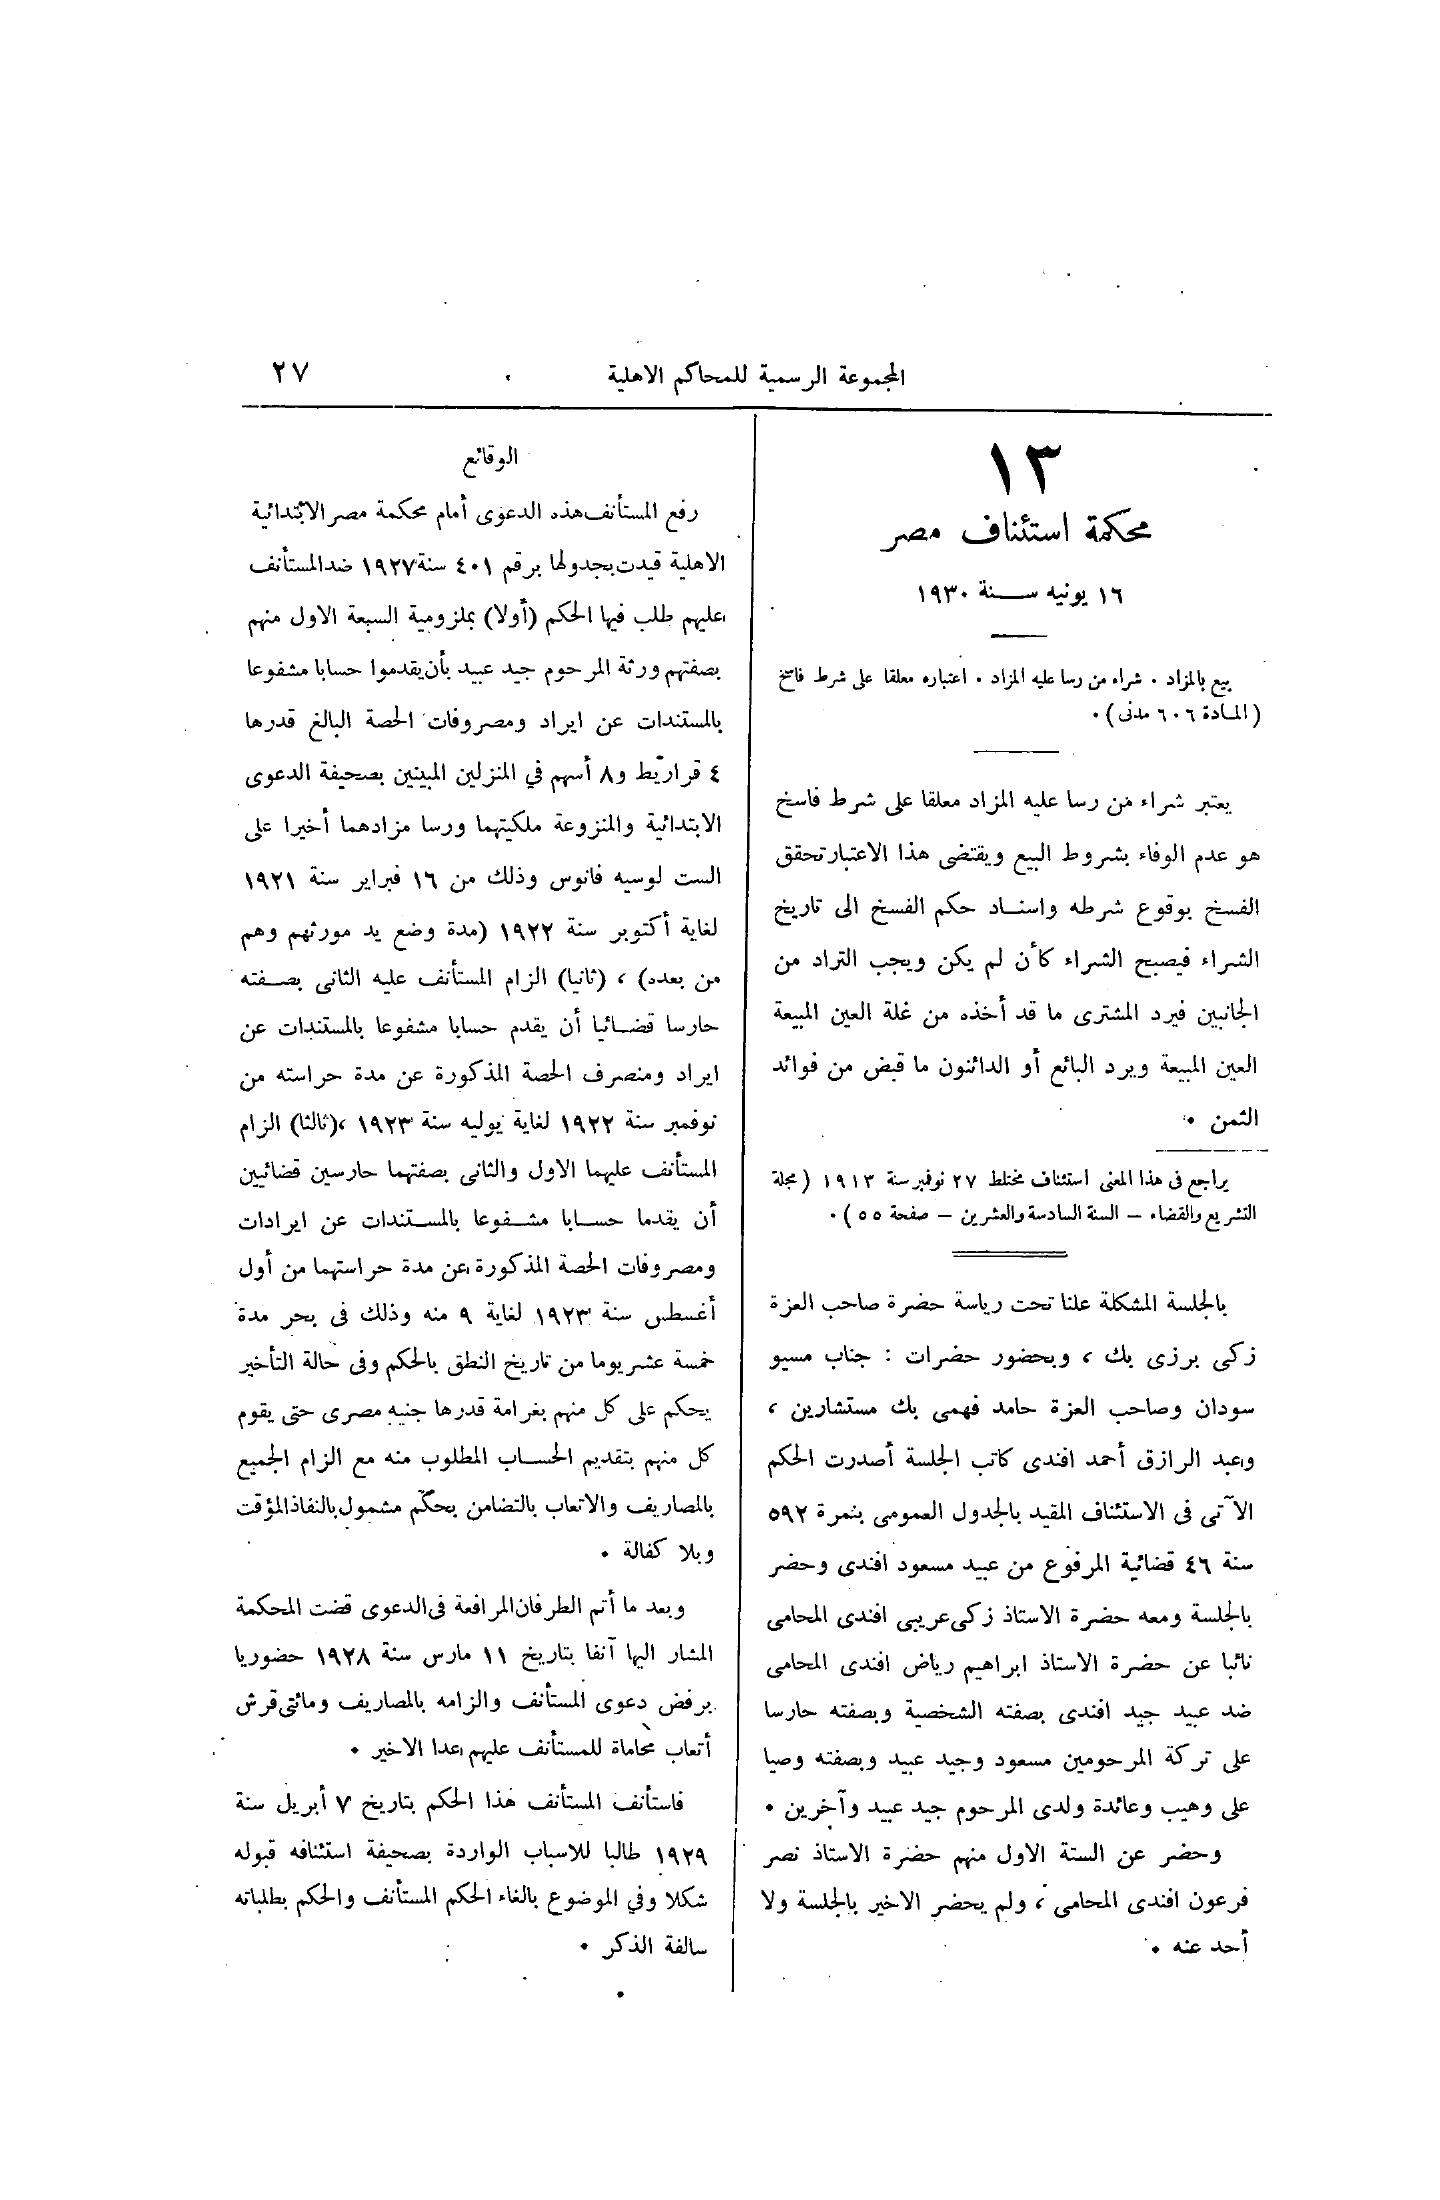 المجموعة الرسمية للمحاكم الاهلية
٢٧
١٣
محكمة استئناف مصر
١٦ يونيه سنة ١٩٣٠
بيع بالمزاد . شراء من رسا عليه المزاد . اعتباره معلقا على شرط فاسخ
(المادة ٦٠٦ مدنى) .
يعتبر شراء من رسا عليه المزاد معلقا على شرط فاسخ
هو عدم الوفاء بشروط البيع ويقتضى هذا الاعتبار تحقق
الفسخ بوقوع شرطه واسناد حكم الفسخ الى تاريخ
الشراء فيصبح الشراء كأن لم يكن ويجب التراد من
الجانبين فيرد المشترى ما قد أخذه من غلة العين المبيعة
العين المبيعة ويرد البائع أو الدائنون ما قبض من فوائد
الثمن .
يراجع فى هذا المعنى استئناف مختلط ٢٧ نوفمبر سنة ١٩١٣ (مجلة
التشريع والقضاء – السنة السادسة والعشرين – صفحة ٥٥) .
بالجلسة المشكلة علنا تحت رياسة حضرة صاحب العزة
زكى برزى بك ، وبحضور حضرات : جناب مسيو
سودان وصاحب العزة حامد فهمى بك مستشارين ،
وعبد الرازق أحمد افندى كاتب الجلسة أصدرت الحكم
الآتى فى الاستئناف المقيد بالجدول العمومى بنمرة ٥٩٢
سنة ٤٦ قضائية المرفوع من عبيد مسعود افندى وحضر
بالجلسة ومعه حضرة الاستاذ زكى عريبى افندى المحامى
نائبا عن حضرة الاستاذ ابراهيم رياض افندى المحامى
ضد عبيد جيد افندى بصفته الشخصية وبصفته حارسا
على تركة المرحومين مسعود وجيد عبيد وبصفته وصيا
على وهيب وعائدة ولدى المرحوم جيد عبيد وآخرين .
وحضر عن الستة الاول منهم حضرة الاستاذ نصر
فرعون افندى المحامى ، ولم يحضر الاخير بالجلسة ولا
أحد عنه .
الوقائع
رفع المستأنف هذه الدعوى أمام محكمة مصر الابتدائية
الاهلية قيدت بجدولها برقم ٤٠١ سنة ١٩٢٧ ضد المستأنف
عليهم طلب فيها الحكم (أولا) بملزومية السبعة الاول منهم
بصفتهم ورثة المرحوم جيد عبيد بأن يقدموا حسابا مشفوعا
بالمستندات عن ايراد ومصروفات الحصة البالغ قدرها
٤ قراريط و٨ أسهم في المنزلين المبينين بصحيفة الدعوى
الابتدائية والمنزوعة ملكيتهما ورسا مزادهما أخيرا على
الست لوسيه فانوس وذلك من ١٦ فبراير سنة ١٩٢١
لغاية أكتوبر سنة ١٩٢٢ (مدة وضع يد مورثهم وهم
من بعده) ، (ثانيا) الزام المستأنف عليه الثانى بصفته
حارسا قضائيا أن يقدم حسابا مشفوعا بالمستندات عن
ايراد ومنصرف الحصة المذكورة عن مدة حراسته من
نوفمبر سنة ١٩٢٢ لغاية يوليه سنة ١٩٢٣ ،(ثالثا) الزام
المستأنف عليهما الاول والثانى بصفتهما حارسين قضائيين
أن يقدما حسابا مشفوعا بالمستندات عن ايرادات
ومصروفات الحصة المذكورة عن مدة حراستهما من أول
أغسطس سنة ١٩٢٣ لغاية ٩ منه وذلك فى بحر مدة
خمسة عشر يوما من تاريخ النطق بالحكم وفى حالة التأخير
يحكم على كل منهم بغرامة قدرها جنيه مصرى حتى يقوم
كل منهم بتقديم الحساب المطلوب منه مع الزام الجميع
بالمصاريف والاتعاب بالتضامن بحكم مشمول بالنفاذ المؤقت
وبلا كفالة .
وبعد ما أتم الطرفان المرافعة فى الدعوى قضت المحكمة
المشار اليها آنفا بتاريخ ١١ مارس سنة ١٩٢٨ حضوريا
برفض دعوى المستأنف والزامه بالمصاريف ومائتى قرش
أتعاب محاماة للمستأنف عليهم عدا الاخير .
فاستأنف المستأنف هذا الحكم بتاريخ ٧ أبريل سنة
١٩٢٩ طالبا للاسباب الواردة بصحيفة استئنافه قبوله
شكلا وفي الموضوع بالغاء الحكم المستأنف والحكم بطلباته
سالفة الذكر .